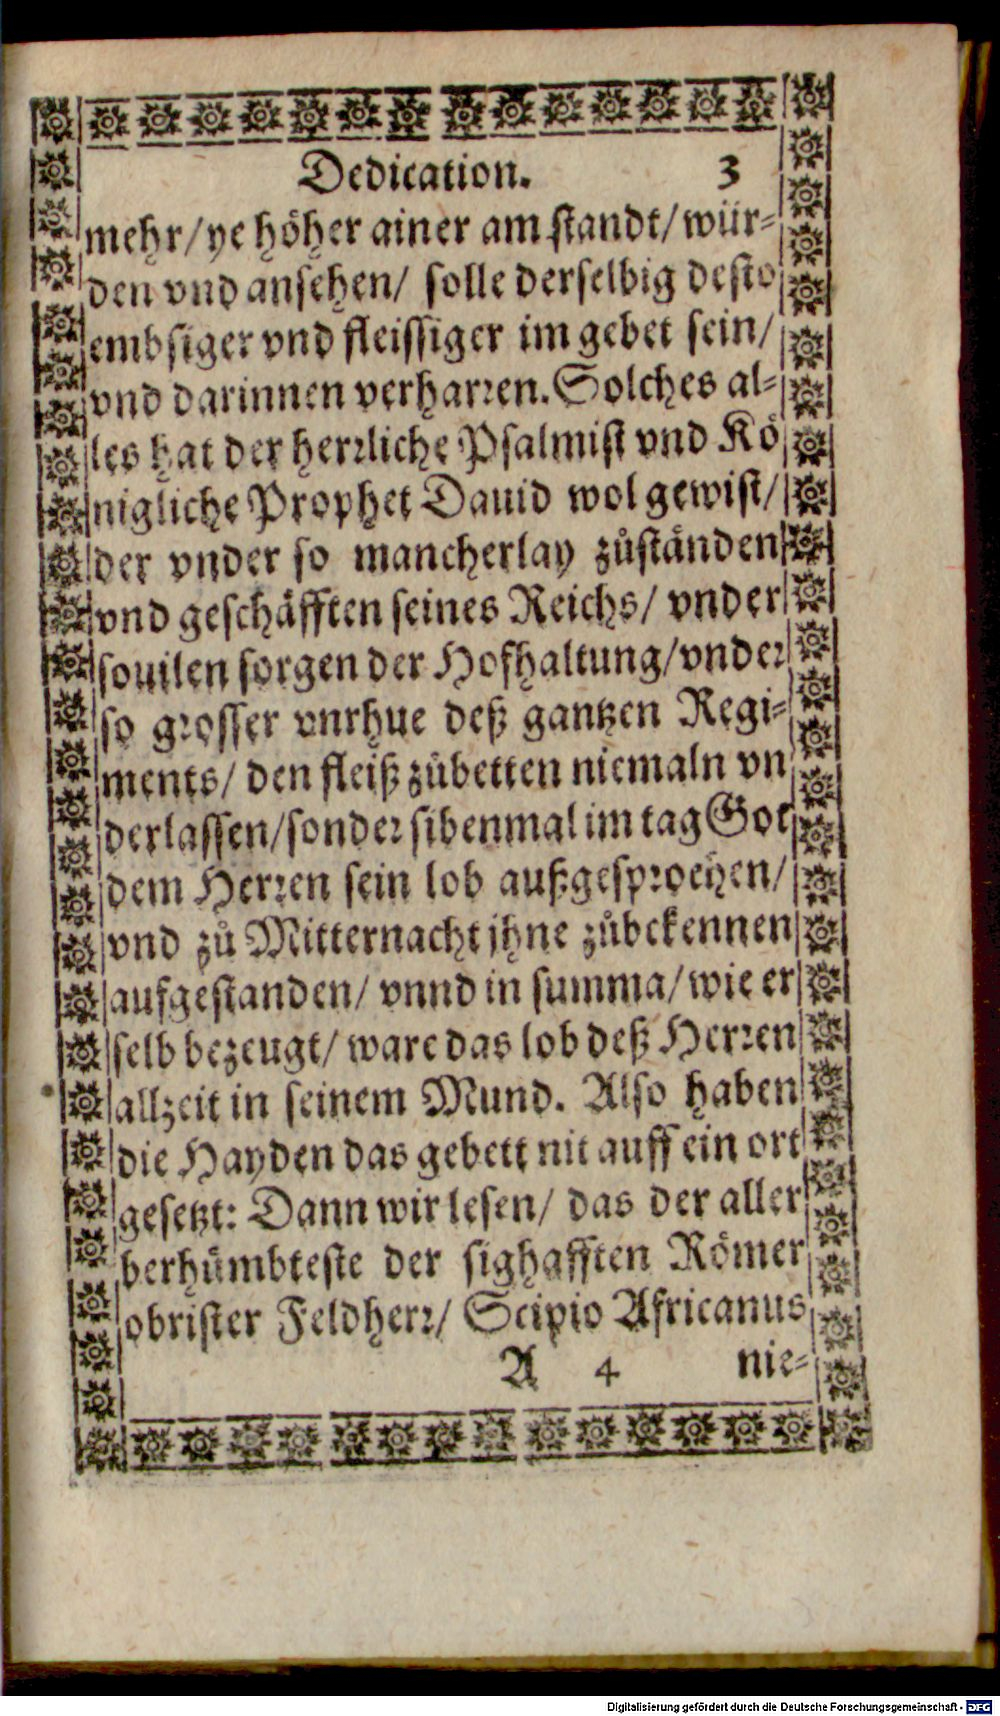 Dedication. 3
mehr/ ye höher ainer am standt/ wür-
den vnd ansehen/ solle derselbig desto
embsiger vnd fleissiger im gebet sein/
vnd darinnen verharren. Solches al-
les hat der herrliche Psalmist vnd Kö
nigliche Prophet Dauid wol gewist/
der vnder so mancherlay zůständen
vnd geschäfften seines Reichs/ vnder
souilen sorgen der Hofhaltung/ vnder
so grosser vnrhue deß gantzen Regi-
ments/ den fleiß zůbetten niemaln vn
derlassen/ sonder sibenmal im tag Got
dem Herren sein lob außgesprochen/
vnd zů Mitternacht jhne zůbekennen
aufgestanden/ vnnd in summa/ wie er
selb bezeugt/ ware das lob deß Herren
allzeit in seinem Mund. Also haben
die Hayden das gebett nit auff ein ort
gesetzt: Dann wir lesen/ das der aller
berhümbteste der sighafften Römer
obrister Feldherr/ Scipio Africanus
A 4 nie-
Digitalisierung gefördert durch die Deutsche Forschungsgemeinschaft - DFG